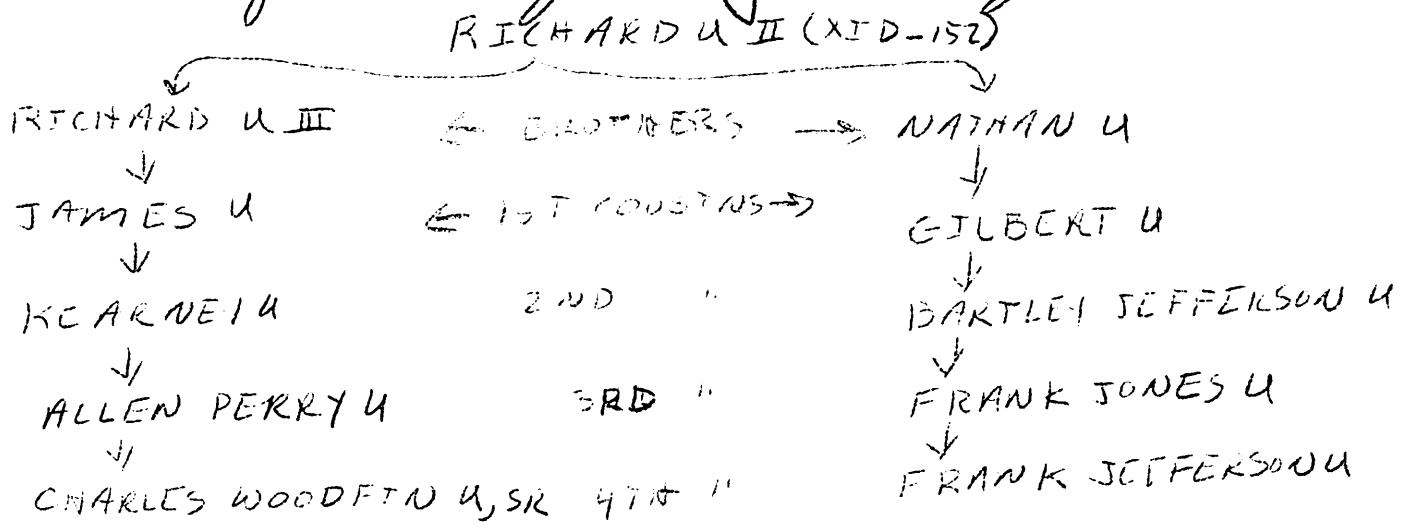 RICHARD U II (XID-152)
RICHARD U III ← BROTHERS → NATHAN U
JAMES U ← 1ST COUSINS → GILBERT U
KEARNEY U 2ND " BARTLEY JEFFERSON U
ALLEN PERRY U 3RD " FRANK JONES U
CHARLES WOODFIN U, SR 4TH " FRANK JEFFERSON U